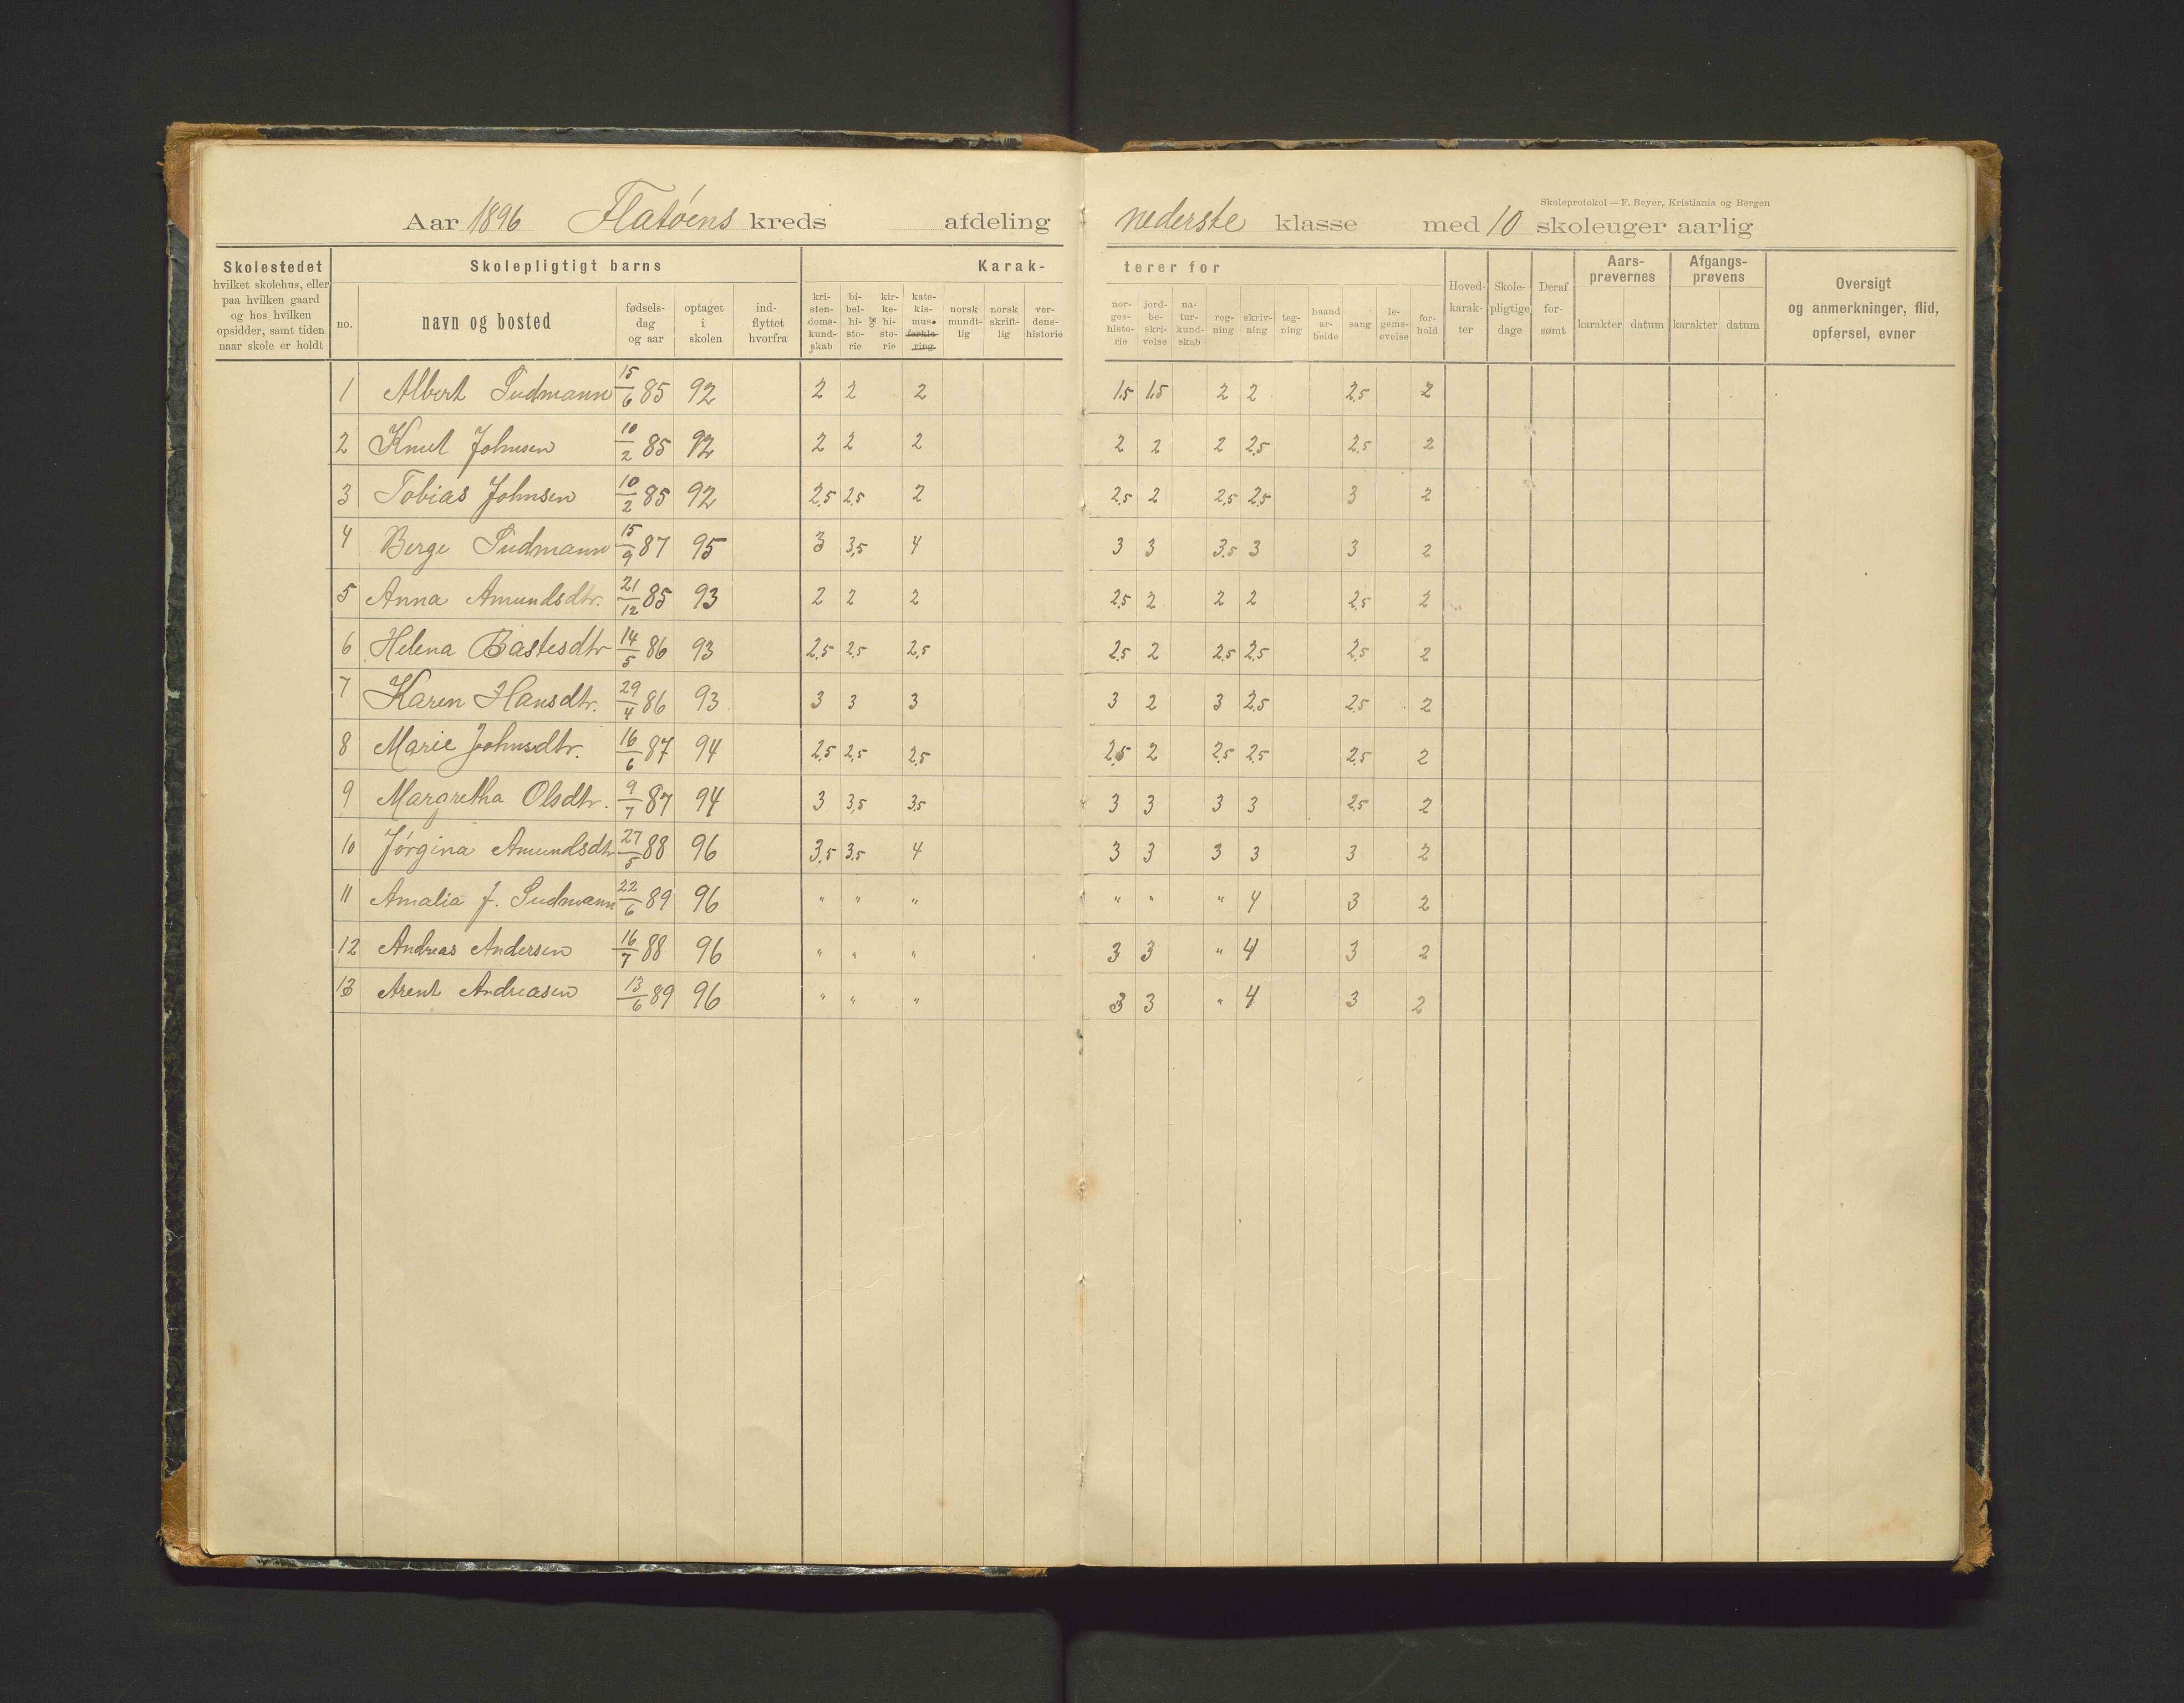 Skoleprotokol — F. Beyer, Kristiania og Bergen
Aar 1896 Flatøens kreds afdeling nederste klasse med 10 skoleuger aarlig
Skolestedet hvilket skolehus, eller paa hvilken gaard og hos hvilken opsidder, samt tiden naar skole er holdt
Skolepligtigt barns
no. navn og bosted fødselsdag og aar optaget i skolen indflyttet hvorfra
Karakterer for
kristendomskundskab bibelhistorie og kirkehistorie katekismus forklaring norsk mundtlig norsk skriftlig verdenshistorie
norgeshistorie jordbeskrivelse naturkundskab regning skrivning tegning haandarbeide sang legemsøvelse forhold
Hovedkarakter Skolepligtige dage Deraf forsømt
Aarsprøvernes karakter datum
Afgangsprøvens karakter datum
Oversigt og anmerkninger, flid, opførsel, evner
1 Albert Sudmann 15/6 85 92 2 2 2 1,5 1,5 2 2 2,5 2
2 Knut Johnsen 10/2 85 92 2 2 2 2 2 2 2,5 2,5 2
3 Tobias Johnsen 10/2 85 92 2,5 2,5 2 2,5 2 2,5 2,5 3 2
4 Berge Sudmann 15/9 87 95 3 3,5 4 3 3 3,5 3 3 2
5 Anna Amundsdtr. 21/12 85 93 2 2 2 2,5 2 2 2 2,5 2
6 Helena Bastesdtr 14/5 86 93 2,5 2,5 2,5 2,5 2 2,5 2,5 2,5 2
7 Karen Hansdtr. 29/4 86 93 3 3 3 3 2 3 2,5 2,5 2
8 Marie Johnsdtr. 16/6 87 94 2,5 2,5 2,5 2,5 2 2,5 2,5 2,5 2
9 Margretha Olsdtr. 9/7 87 94 3 3,5 3,5 3 3 3 3 2,5 2
10 Jørgina Amundsdtr 27/5 88 96 3,5 3,5 4 3 3 3 3 3 2
11 Amalia J. Sudmann 22/6 89 96 " " " " " " 4 3 2
12 Andreas Andersen 16/7 88 96 " " " 3 3 " 4 3 2
13 Arent Andreasen 13/6 89 96 " " " 3 3 " 4 3 2